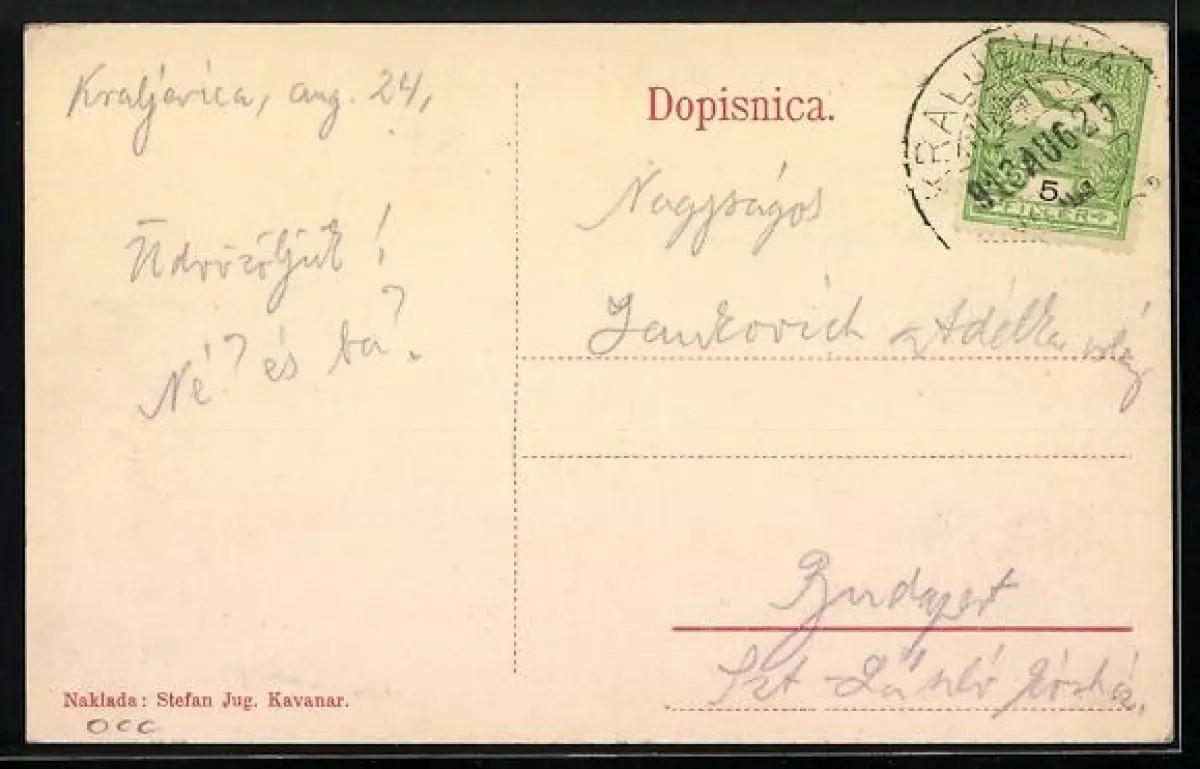 Kraljevica, aug. 24,
Üdvözöljük!
Né? és ta?
Dopisnica.
KRALJEVICA
913 AUG 25
5
FILLER
Nagyságos
Jankovich Adélka
Budapest
Szt László
Naklada: Stefan Jug. Kavanar.
occ